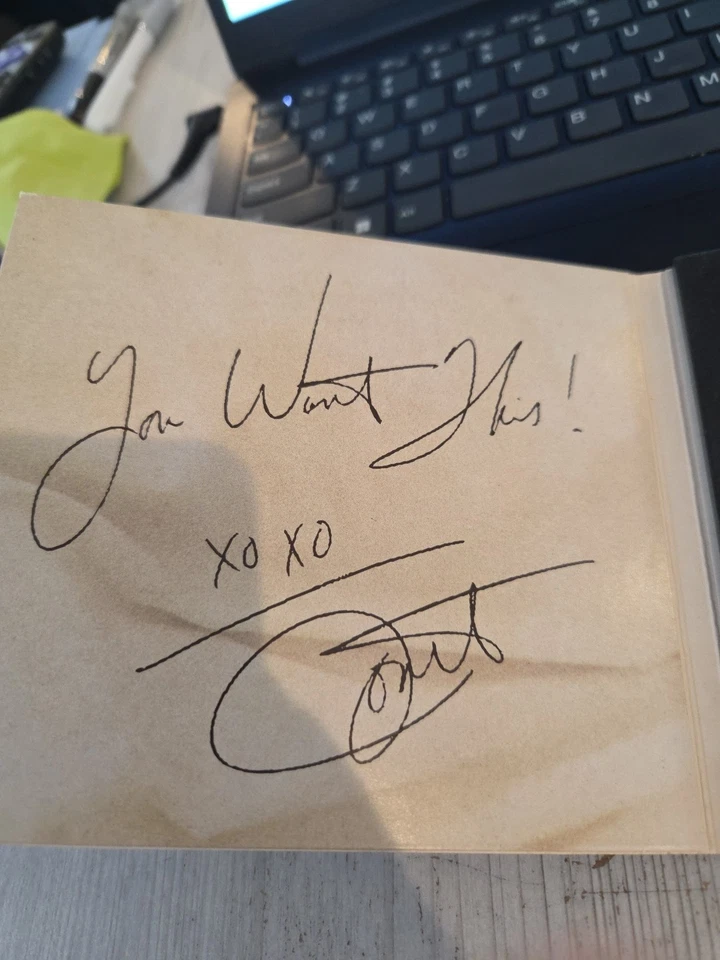 You Want This!
XO XO